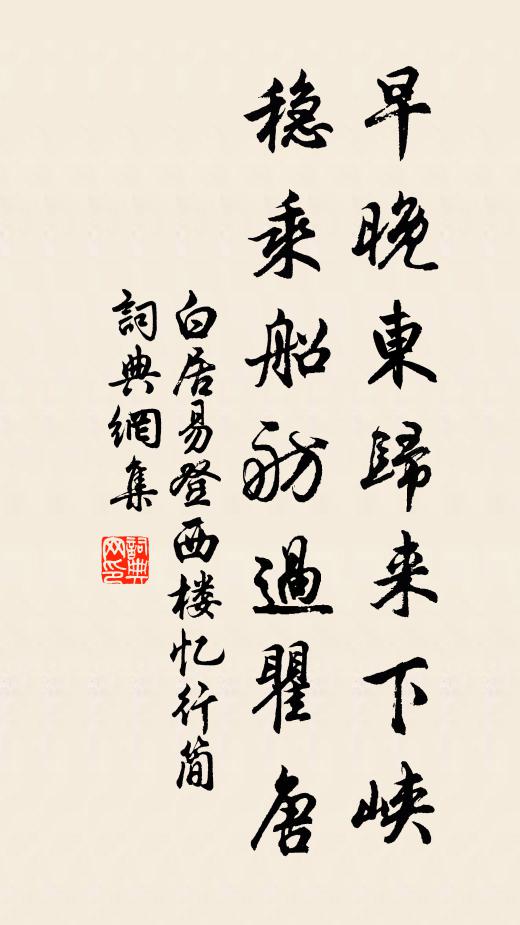 早晚東歸来下峡
穏乘船舫過瞿唐
白居易登西楼忆行简
詞典網集
詞典
网印